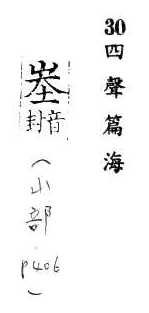 30四聲篇海
峚
封音
（山部 p406）